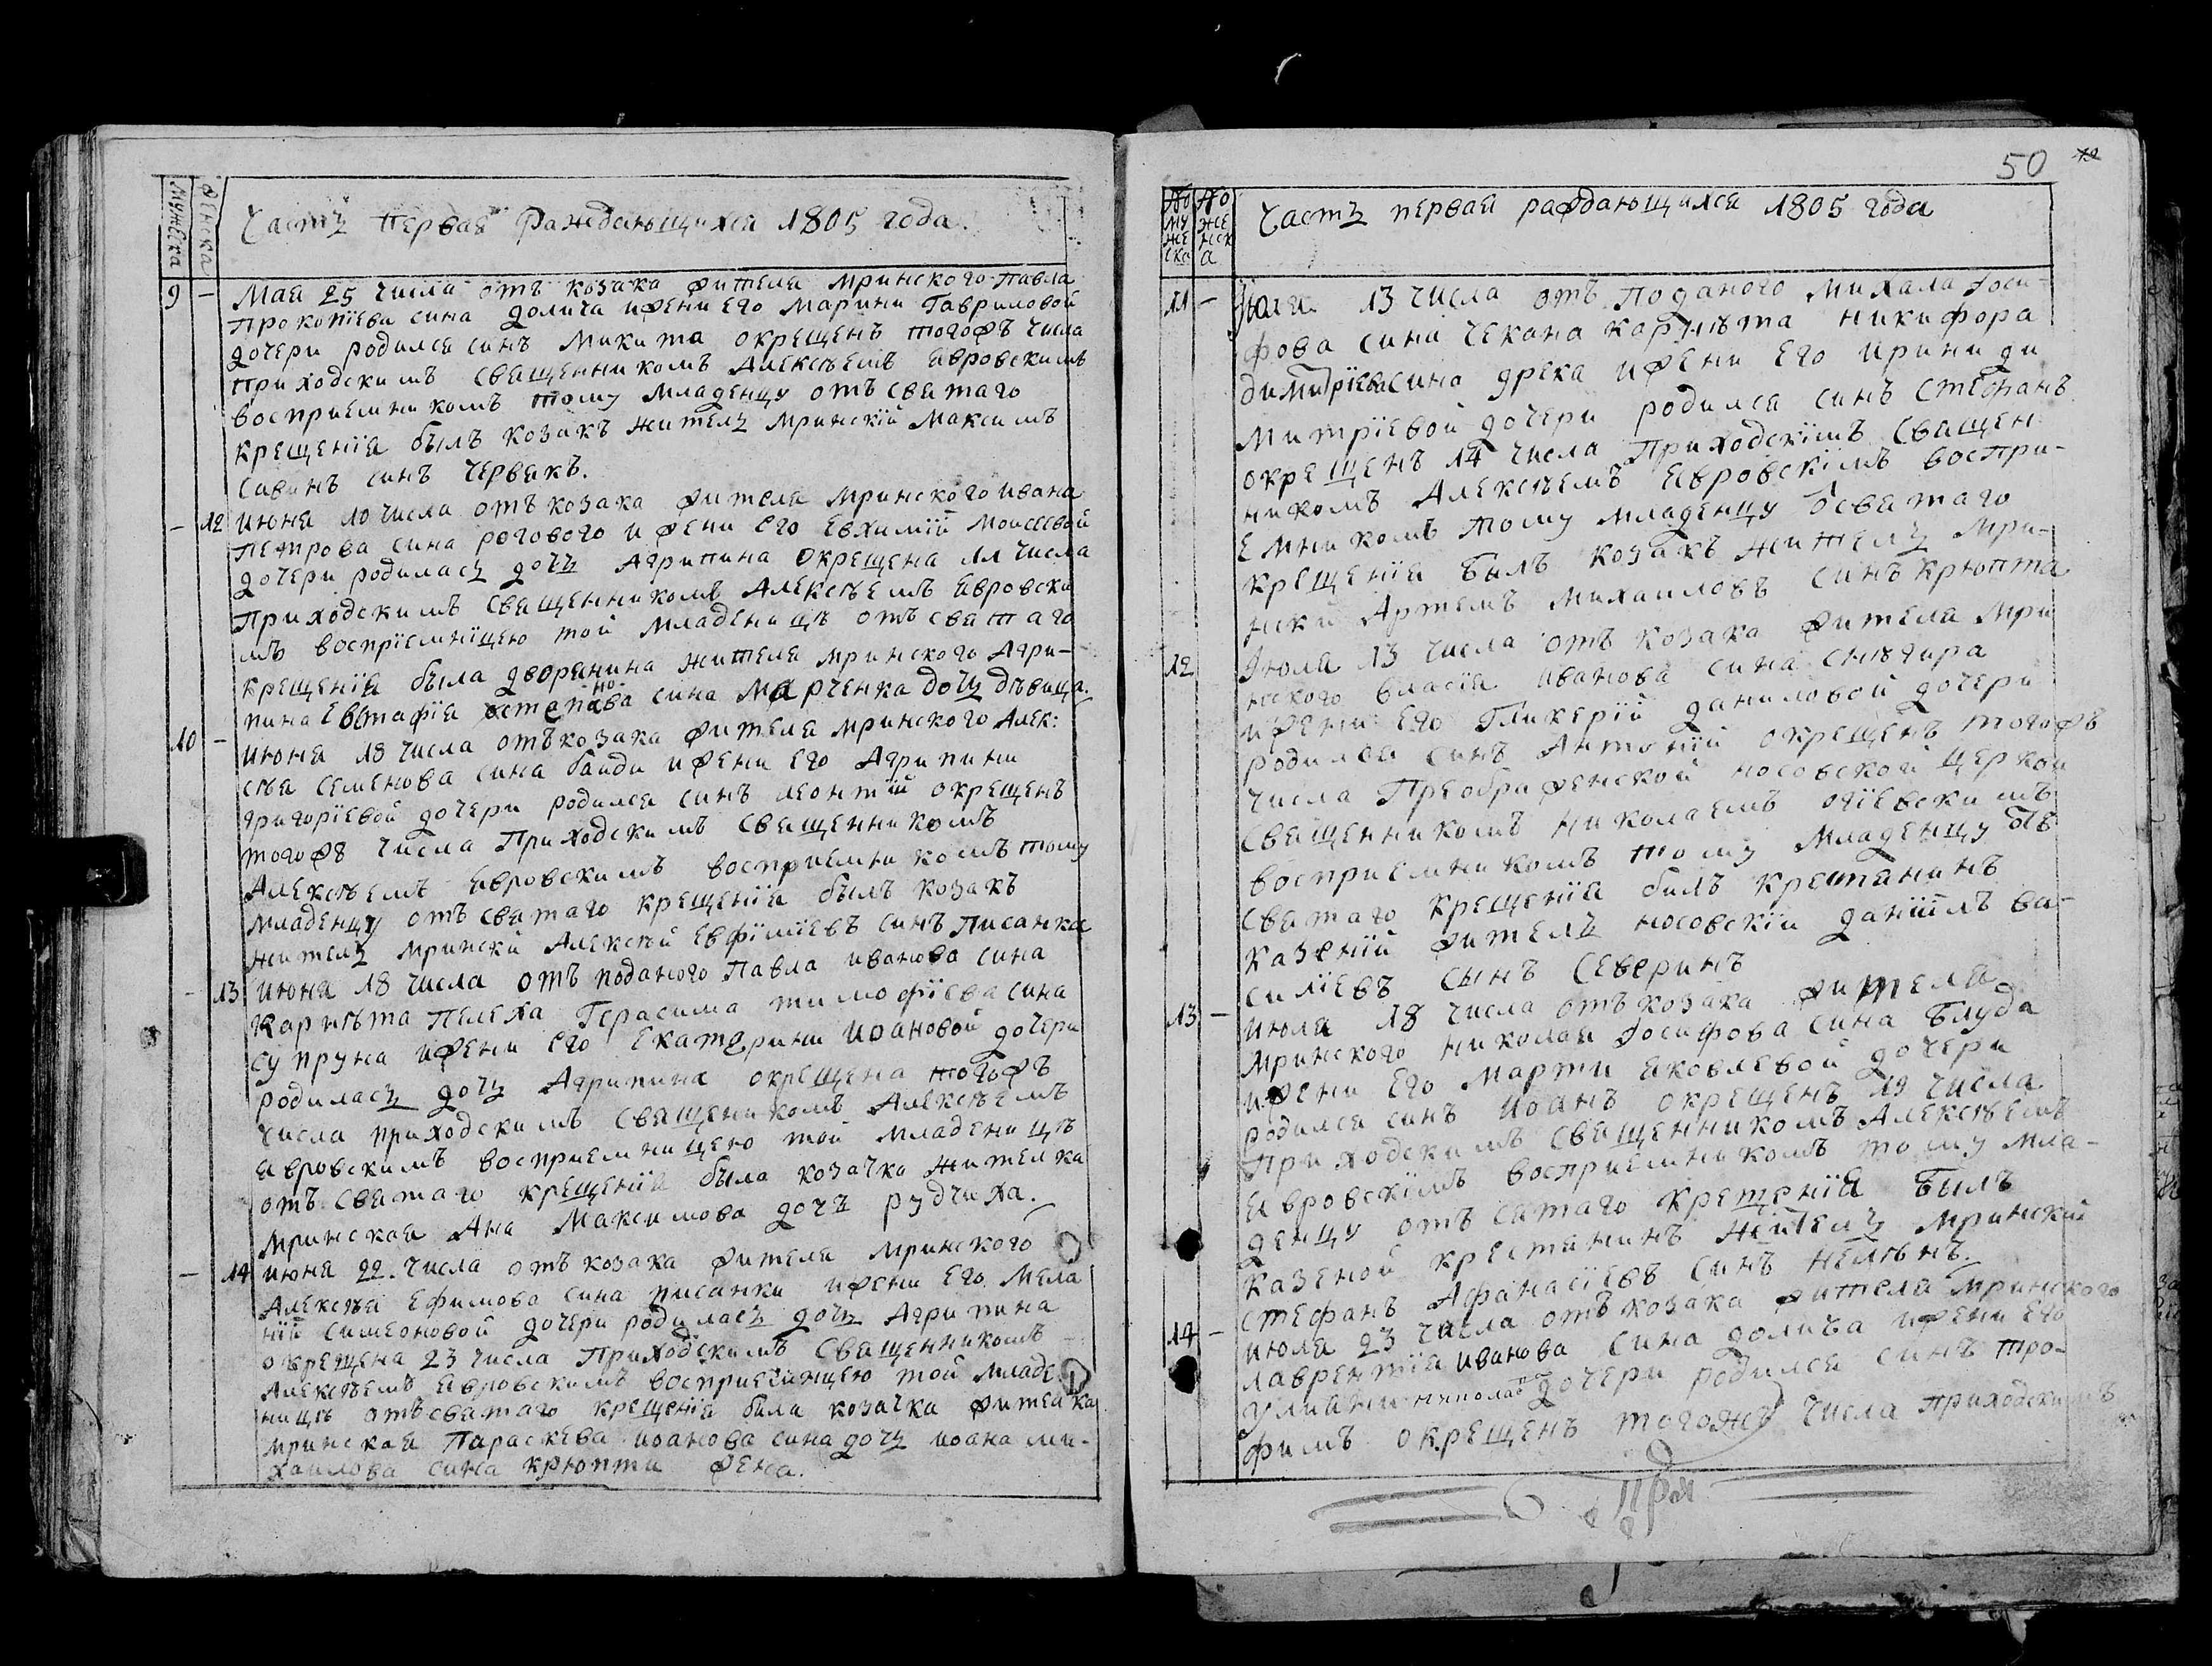 мужеска
женска
Часть первая раждающихся 1805 года.
9 – Мая 25 числа отъ козака жителя мринского Павла
Прокопїева сина долича и жени его Марини Гавриловой
дочери родился синъ Микита окрещенъ тогожъ числа
приходскимъ священникомъ Алексѣемъ Явровскимъ
восприемникомъ тому младенцу отъ святаго
крещенїя былъ козакъ житель мринскїй Максимъ
Савинъ синъ червякъ.
– 12 Июня 10 числа отъ козака жителя мринского ивана
Петрова сина рогового и жени его Евхимїй Моисеевой
дочери родилась дочь Агрипина окрещена 11 числа
приходскимъ священникомъ Алексѣемъ Явровски
мъ воспрїемнїцею той младеницѣ отъ святаго
крещенїя была дворянина жителя мринского Агри-
пина Евстафїя сина Марченка дочь дѣвица.
10 – июня 18 числа отъ козака жителя мринского Алек:
сѣя Семенова сина банди и жени его Агрипини
григорїевой дочери родился синъ леонтїй окрещенъ
тогожъ числа приходскимъ священникомъ
Алексѣемъ Явровскимъ восприемникомъ тому
младенцу отъ святаго крещенїя былъ козакъ
житель мрински Алексѣй Евфимїевъ синъ Писанка
– 13 июня 18 числа отъ поданого Павла иванова сина
Карнѣта Пелеха Герасима тимофїева сина
супруна и жени его Екатерини Иоановой дочери
родилась дочь Агрипина окрещена тогожъ
числа приходскимъ священикомъ Алексѣемъ
Явровскимъ восприемницею той младеницѣ
отъ святаго крещенїя была козачка жителка
мринская Ана Максимова дочъ рудчиха.
– 14 июня 22. числа отъ козака жителя мринского
Алексѣя Ефимова сина писанки и жени его Мела
нїй симеоновой дочери родилась дочь Агрипина
окрещена 23 числа приходскимъ священникомъ
Алексѣемъ Явровскимъ восприемницею той младе
ницѣ отъ святаго крещенїя била козачка жителка
мринская Параскева иоанова сина дочь иоана ми-
хаилова сина крюпти жена.
50
№ муже ска
№ же нск а
Часть первая раждающихся 1805 года
11 – Июля 13 числа отъ поданого Михаила Иоси-
фова сина чекана карнѣта никифора
димитрїева сина грека и жени его Ирини ди
митрїевой дочери родился синъ Стефанъ
окрещенъ 14 числа приходскїмъ священ
никомъ Алексѣемъ Явровскїмъ воспри-
емникомъ тому младенцу ѿ святаго
крещенїя былъ козакъ житель мри-
нски Артемъ михаиловъ синъ крюпта
12 Июля 13 числа отъ козака жителя мри
нского власїя иванова сина снѣгира
и жени его Гликерїй даниловой дочери
родился синъ Антонїй окрещенъ тогожъ
числа Преображенской носовской церкви
священникомъ николаемъ
восприемникомъ тому младенцу отъ
святаго крещенїя билъ крестянинъ
казенїй житель носовскїй данїилъ ва-
силїевъ сынъ Северинъ
13 – июля 18 числа отъ козака жителя
мринского николая Иосифова сина Блуда
и жени его Марти яковлевой дочери
родился синъ иоанъ окрещенъ 19 числа
приходскимъ священникомъ Алексѣемъ
Явровскїмъ восприемникомъ тому мла-
денцу отъ сятаго крещенїя былъ
казеной крестянинъ житель мринскїй
Стефанъ Афанасїевъ синъ
14 – июля 23 числа отъ козака жителя мринского
лаврентїя иванова сина долича и жени его
улияни дочери родился синъ тро-
фимъ окрещенъ тогожъ числа приходскимъ